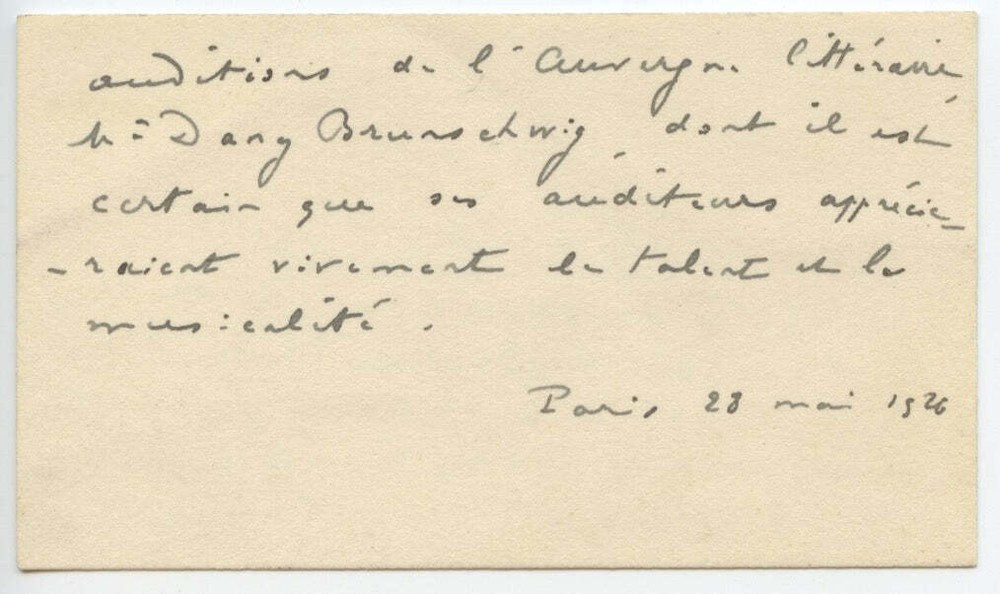 auditions de l'Auvergne littéraire,
Me Dany Brunschwig dont il est
certain que ses auditeurs apprécie-
-raient vivement le talent et la
musicalité.
Paris 28 mai 1926